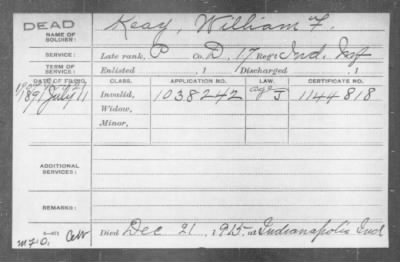 DEAD
NAME OF SOLDIER:
Keay, William F.
SERVICE:
Late rank, P Co. D, 17 Reg't Ind. Inf
TERM OF SERVICE:
Enlisted , 1 Discharged , 1
DATE OF FILING. CLASS. APPLICATION NO. LAW. CERTIFICATE NO.
1891 July 11 Invalid, 1038242 age J 1144818
Widow,
Minor,
ADDITIONAL SERVICES:
REMARKS:
Died Dec 21, 1915, at Indianapolis Ind